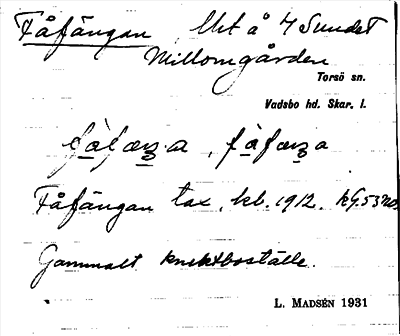 Fåfängan Utä å 4 Sundet
Millomgården
Torsö sn.
Vadsbo hd. Skar. l.
Fåfängan tax. kl. 1912. kG. 53
Gammalt knektboställe.
L. MADSÉN 1931